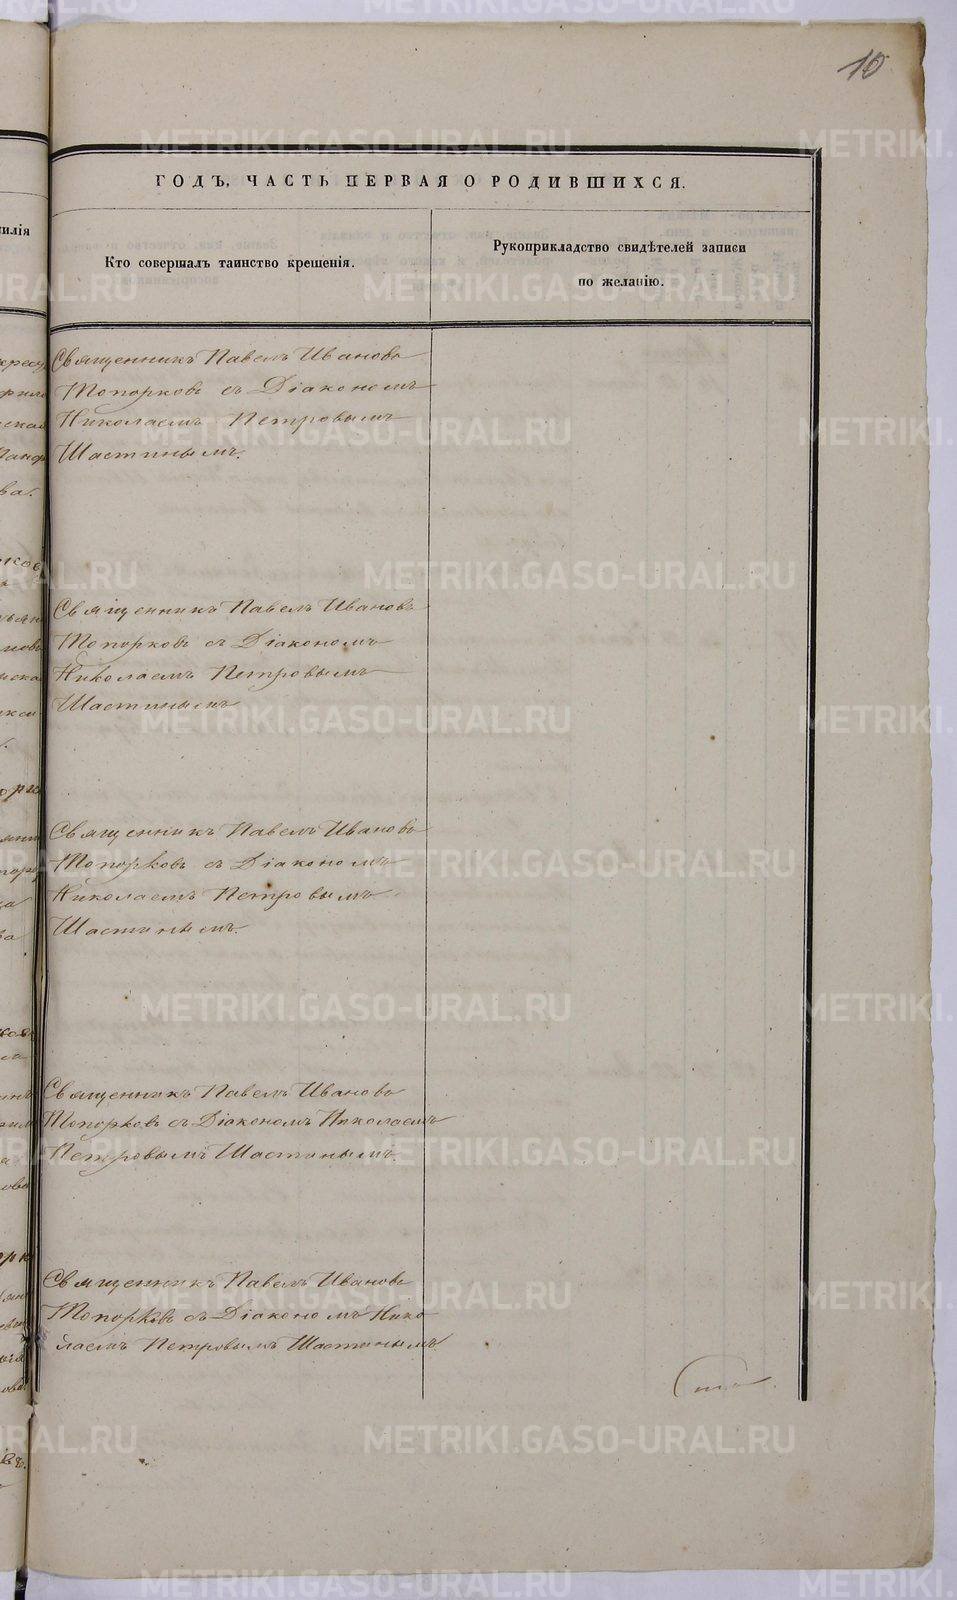 10
ГОДЪ, ЧАСТЬ ПЕРВАЯ О РОДИВШИХСЯ.
Кто совершалъ таинство крещенія.
Рукоприкладство свидѣтелей записи
по желанію.
Священникъ Павелъ Ивановъ
Топорковъ съ Діакономъ
Николаемъ Петровымъ
Шастинымъ.
Священникъ Павелъ Ивановъ
Топорковъ съ Діакономъ
Николаемъ Петровымъ
Шастинымъ
Священникъ Павелъ Ивановъ
Топорковъ съ Діакономъ
Николаемъ Петровымъ
Шастинымъ.
Священникъ Павелъ Ивановъ
Топорковъ съ Діакономъ Николаемъ
Петровымъ Шастинымъ
Священникъ Павелъ Ивановъ
Топорковъ съ Діакономъ Нико
лаемъ Петровымъ Шастинымъ
METRIKI.GASO-URAL.RU